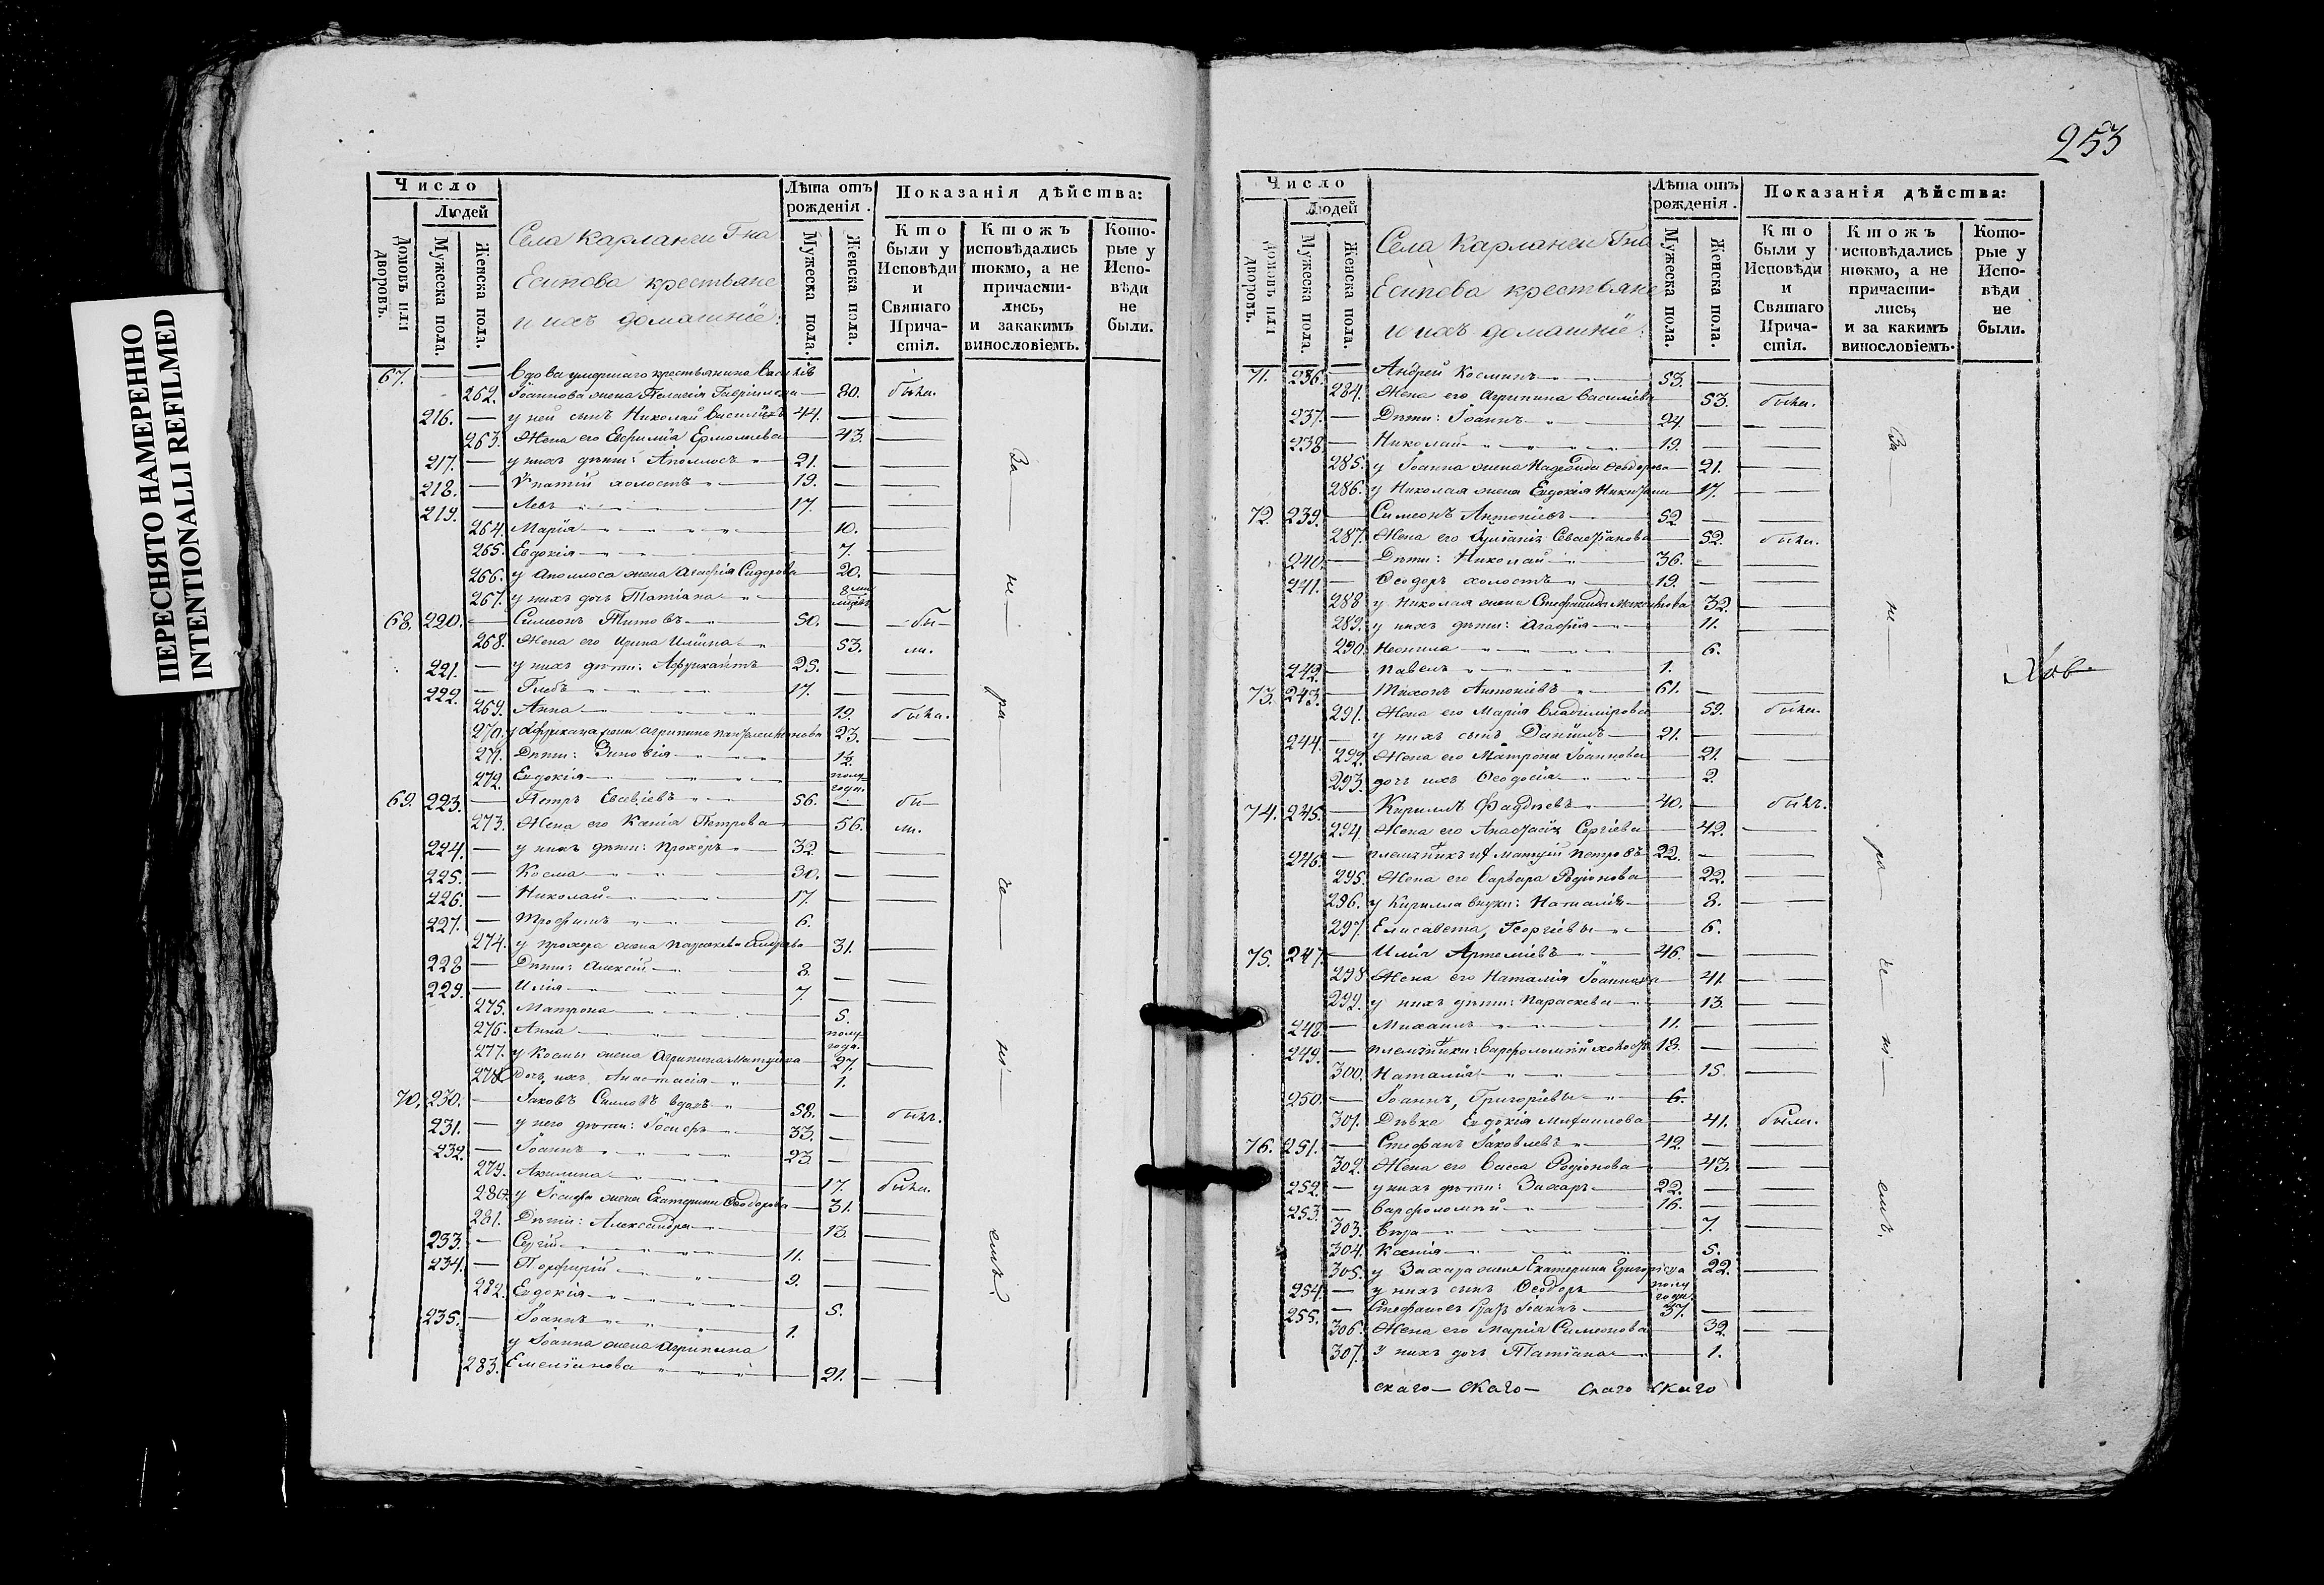 ПЕРЕСНЯТО НАМЕРЕННО
INTENTIONALLI REFILMED
Число
Людей
Домовъ или дворовъ.
Мужеска пола.
Женска пола.
Села Карланги Гна
Есипова крестьяне
и ихъ домашніе:
Лѣта отъ рожденія.
Мужеска пола.
Женска пола.
Показанія дѣйства:
Кто были у Исповѣди и Святаго Прича-стія.
Ктожъ исповѣдались токмо, а не причасти-лись, и закакимъ винословіемъ.
Кото-рые у Испо-вѣди не были.
67. — Вдова умершаго крестьянина Василія
262. Іоаннова жена Пелагія Гаврилова — 80. была.
216. — у ней сынъ Николай Васильевъ 44. —
263. Жена его Евфимія Ермолаева — 43. —
217. — у нихъ дѣти: Аполлосъ 21. —
218. — Упатій холостъ 19. —
219. — Левъ 17. —
264. Марія — 10. —
265. Евдокія — 7. —
266. у Аполлоса жена Агафія Сидорова — 20. —
267. у нихъ дочь Татіана — 8 ми
68. 220. — Симеонъ Титовъ 50. — бы-
268. Жена его Ирина Ильина — 53. ли.
221. — у нихъ дѣти: Африкантъ 25. —
222. — Глебъ 17. —
269. Анна — 19. была.
270. у Африкана жена Агрипина Пантелеимонова 23. —
271. Дѣти: Зиновія — 1½.
272. Евдокія — полу года.
69. 223. — Петръ Евсевіевъ 56. — бы-
273. Жена его Ксенія Петрова — 56. ли.
224. — у нихъ дѣти: Прохоръ 32. —
225. — Косма 30. —
226. — Николай 17. —
227. — Трофимъ 6.
274. у Прохора жена Параскева — 31. —
228. — Дѣти: Алексій 8. —
229. — Илія 7. —
275. Матрона — 5.
276. Анна — полу года.
277. у Космы жена Агрипина — 27. —
278. Дочь ихъ Анастасія — 1.
70. 230. — Іаковъ вдовъ 58. — былъ.
231. — у него дѣти: Іосифъ 33. —
232. — Іоаннъ 23. —
279. Акилина — 17. была.
280. у Іосифа жена Екатерина Ѳеодорова — 31. —
281. Дѣти: Александра — 13. —
233. — Сергій 11. —
234. — Порфирій 9. —
282. Евдокія — 5.
235. — Іоаннъ 1.
у Іоанна жена Агрипина
283. Емеліанова — 21. —
За — не — ра — че — ні — емъ.
253
Число
Людей
Домовъ или дворовъ.
Мужеска пола.
Женска пола.
Села Карланги Гна
Есипова крестьяне
и ихъ домашніе:
Лѣта отъ рожденія.
Мужеска пола.
Женска пола.
Показанія дѣйства:
Кто были у Исповѣди и Святаго Прича-стія.
Ктожъ исповѣдались токмо, а не причасти-лись, и за какимъ винословіемъ.
Кото-рые у Испо-вѣди не были.
71. 236. — Андрей Косминъ 53. —
284. Жена его Агрипина Василіева — 53. были.
237. — Дѣти: Іоаннъ 24. —
238. — Николай 19. —
285. у Іоанна жена Надежда Ѳеодорова — 21. —
286. у Николая жена Евдокія — 17. —
72. 239. — Симеонъ Антоніевъ 52. —
287. Жена его Іуліанія Севастіанова — 52. были.
240. — Дѣти: Николай 36. —
241. — Ѳеодоръ холостъ 19. —
288. у Николая жена Стефанида — 32. —
289. у нихъ дѣти: Агафія — 11. —
290. Неонила — 6.
242. — Павелъ 1.
73. 243. — Тихонъ Антоніевъ 61. —
291. Жена его Марія Владимірова — 59. были.
244. — у нихъ сынъ Даніилъ 21. —
292. Жена его Матрона Іоаннова — 21. —
293. дочь ихъ Ѳеодосія — 2.
74. 245. — Кириллъ Фаддѣевъ 40. — былъ.
294. Жена его Анастасія Сергіева — 42. —
246. — племянникъ Матѳій Петровъ 22. —
295. Жена его Варвара Родіонова — 22. —
296. у Кирилла внуки: Наталія — 8. —
297. Елисавета, Георгіевы — 6.
75. 247. — Илія Артеміевъ 46. —
298. Жена его Наталія Іоаннова — 41. —
299. у нихъ дѣти: Параскева — 13. —
248. — Михаилъ 11. —
249. — племянники: Варфоломей холостъ 18. —
300. Наталія — 15. —
250. — Іоаннъ, Григоріевы 6.
301. Дѣвка Евдокія — 41. были.
76. 251. — Стефанъ Іаковлевъ 42. —
302. Жена его Васса Родіонова — 43. —
252. — у нихъ дѣти: Захаръ 22. —
253. — Варфоломей 16. —
303. Вѣра — 7. —
304. Ксенія — 5.
305. у Захара жена Екатерина Григоріева 22. —
254. — у нихъ сынъ Ѳеодоръ полу года.
255. — Стефановъ братъ Іоаннъ 37. —
306. Жена его Марія Симеонова — 32. —
307. У нихъ дочь Татіана — 1.
За — не — ра — че — ні — емъ.
скаго — скаго — скаго скаго